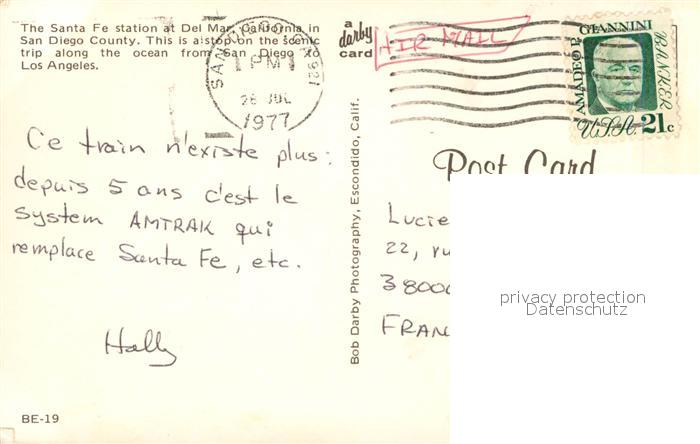 The Santa Fe station at Del Mar, California in
San Diego County. This is a stop on the scenic
trip along the ocean from San Diego to
Los Angeles.
a
darby
card
AIR MAIL
SAN DIEGO CA 921
1 PM
26 JUL
1977
AMADEO P. GIANNINI
BANKER
U.S.A. 21c
Ce train n'existe plus:
depuis 5 ans c'est le
system AMTRAK qui
remplace Santa Fe, etc.
Hally
BE-19
Bob Darby Photography, Escondido, Calif.
Post Card
Lucie
22, ru
38000
FRAN
privacy protection
Datenschutz